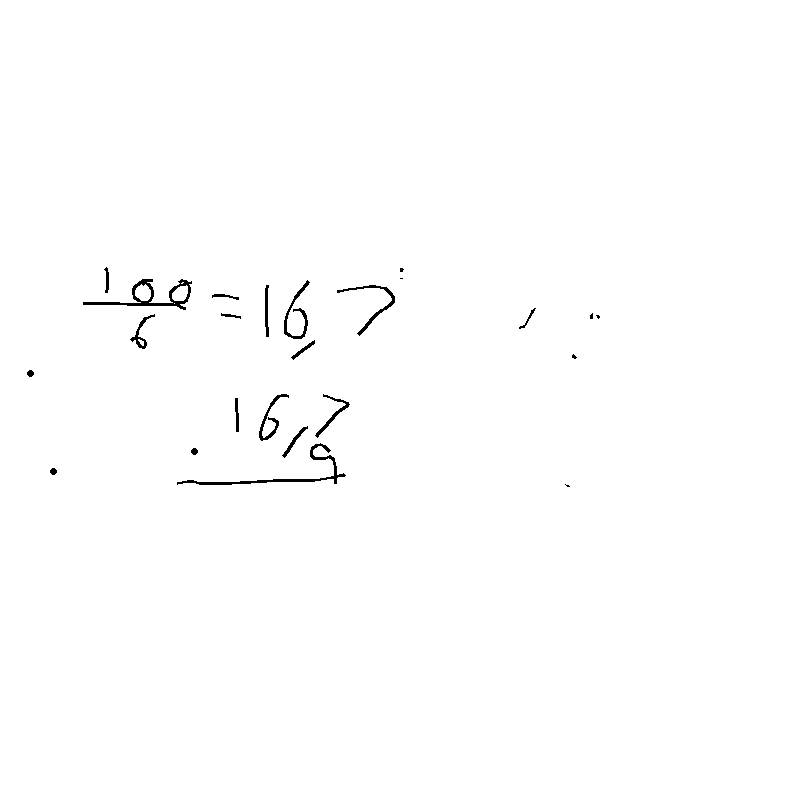 100/6 = 16,7
16,7
. 9